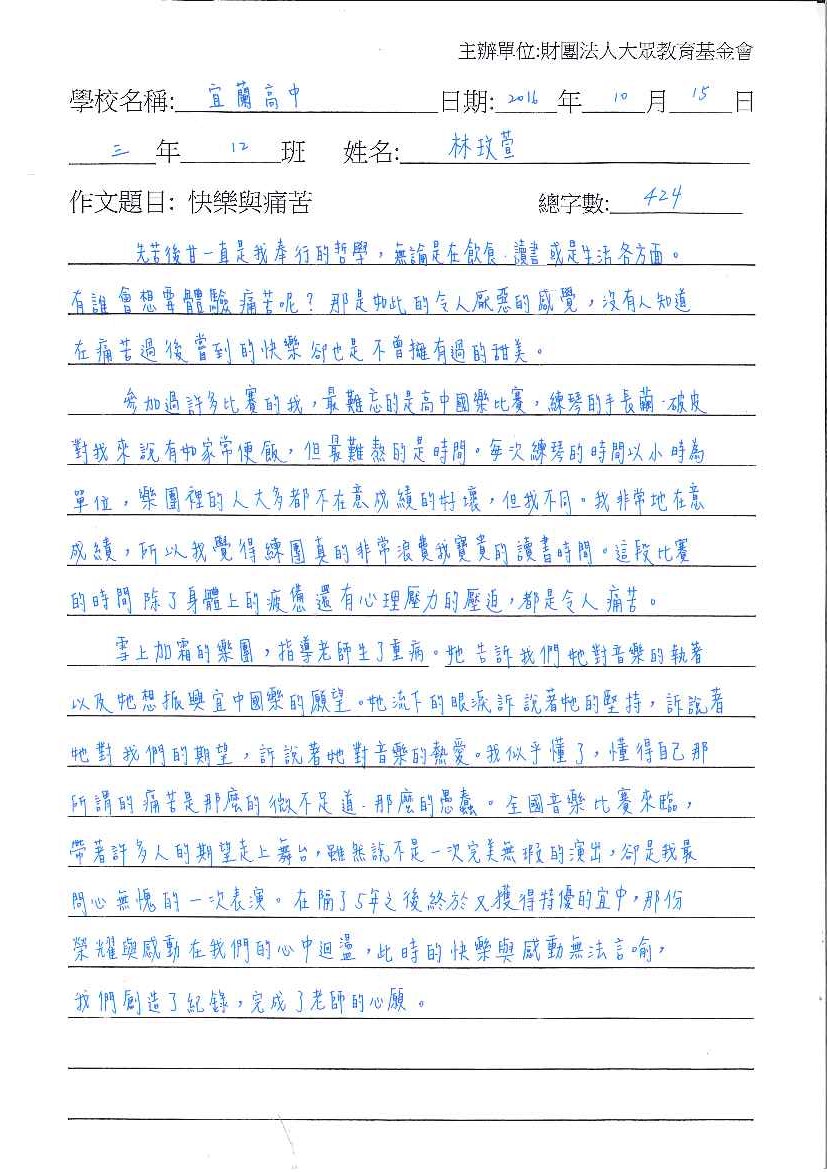 主辦單位:財團法人大眾教育基金會
學校名稱: 宜蘭高中 日期: 2016 年 10 月 15 日
三 年 12 班 姓名: 林玟萱
作文題目: 快樂與痛苦 總字數: 424
先苦後甘一直是我奉行的哲學，無論是在飲食、讀書或是生活各方面。
有誰會想要體驗痛苦呢？那是如此的令人厭惡的感覺，沒有人知道
在痛苦過後嘗到的快樂卻也是不曾擁有過的甜美。
參加過許多比賽的我，最難忘的是高中國樂比賽，練琴的手長繭、破皮
對我來說有如家常便飯，但最難熬的是時間。每次練琴的時間以小時為
單位，樂團裡的人大多都不在意成績的好壞，但我不同。我非常地在意
成績，所以我覺得練團真的非常浪費我寶貴的讀書時間。這段比賽
的時間除了身體上的疲憊還有心理壓力的壓迫，都是令人痛苦。
雪上加霜的樂團，指導老師生了重病。她告訴我們她對音樂的執著
以及她想振興宜中國樂的願望。她流下的眼淚訴說著她的堅持，訴說著
她對我們的期望，訴說著她對音樂的熱愛。我似乎懂了，懂得自己那
所謂的痛苦是那麼的微不足道、那麼的愚蠢。全國音樂比賽來臨，
帶著許多人的期望走上舞台，雖然說不是一次完美無瑕的演出，卻是我最
問心無愧的一次表演。在隔了5年之後終於又獲得特優的宜中，那份
榮耀與感動在我們的心中迴盪，此時的快樂與感動無法言喻，
我們創造了紀錄，完成了老師的心願。